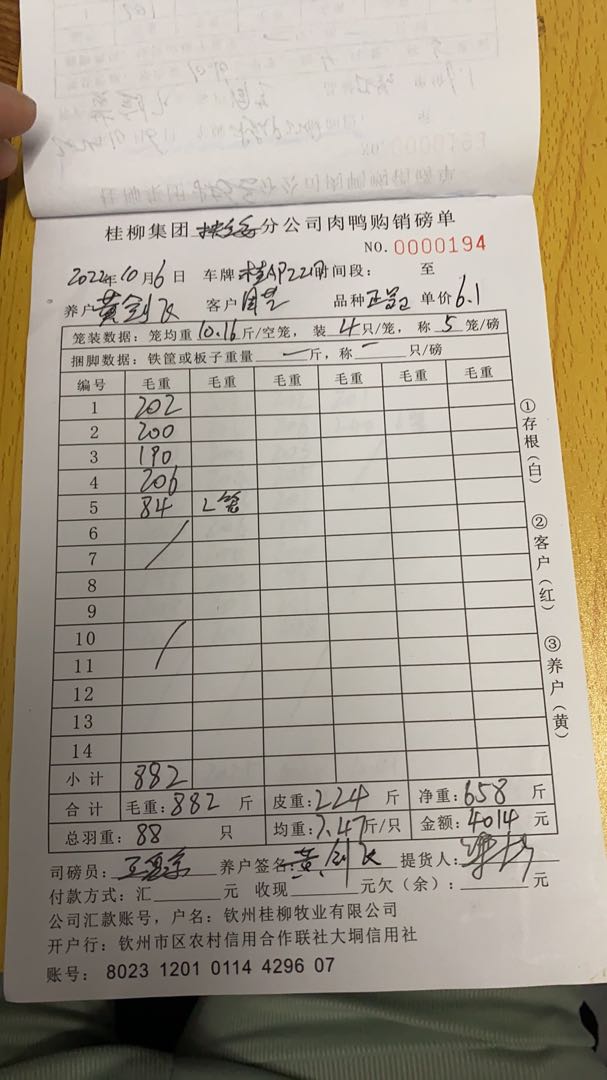 桂柳集团 分公司肉鸭购销磅单
NO.0000194
2022年10月6日 车牌 时间段: 至
养户 黄剑飞 客户 周艺 品种 单价6.1
笼装数据: 笼均重10.16斤/空笼, 装4只/笼, 称5笼/磅
捆脚数据: 铁筐或板子重量一斤, 称一只/磅
编号 毛重 毛重 毛重 毛重 毛重 毛重
1 202
2 200
3 190
4 206
5 84 2笼
6
7
8
9
10
11
12
13
14
小计 882
合计 毛重:882斤 皮重:224斤 净重:658斤
总羽重:88只 均重:7.47斤/只 金额:4014元
司磅员: 养户签名:黄剑飞 提货人:
付款方式: 汇 元 收现 元欠(余): 元
公司汇款账号, 户名: 钦州桂柳牧业有限公司
开户行: 钦州市区农村信用合作联社大垌信用社
账号: 8023 1201 0114 4296 07
①存根(白)
②客户(红)
③养户(黄)